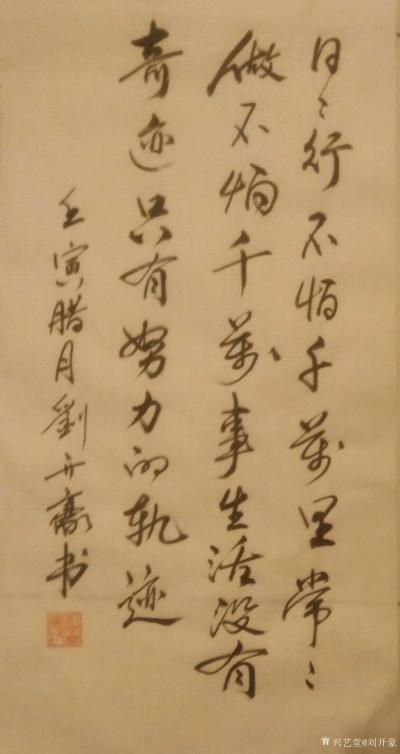 日〻行不怕千萬里常〻
做不怕千萬事生活没有
奇迹只有努力的轨迹
壬寅腊月劉开豪书
兴艺堂@刘开豪